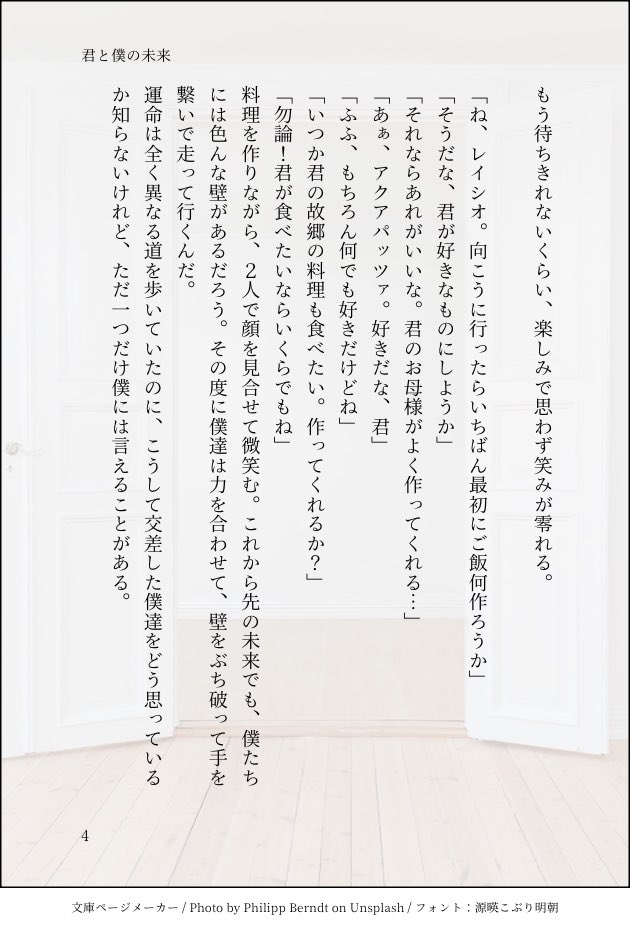 君と僕の未来
もう待ちきれないくらい、楽しみで思わず笑みが零れる。
「ね、レイシオ。向こうに行ったらいちばん最初にご飯何作ろうか」
「そうだな、君が好きなものにしようか」
「それならあれがいいな。君のお母様がよく作ってくれる…」
「あぁ、アクアパッツァ。好きだな、君」
「ふふ、もちろん何でも好きだけどね」
「いつか君の故郷の料理も食べたい。作ってくれるか？」
「勿論！君が食べたいならいくらでもね」
料理を作りながら、２人で顔を見合せて微笑む。これから先の未来でも、僕たち
には色んな壁があるだろう。その度に僕達は力を合わせて、壁をぶち破って手を
繋いで走って行くんだ。
運命は全く異なる道を歩いていたのに、こうして交差した僕達をどう思っている
か知らないけれど、ただ一つだけ僕には言えることがある。
4
文庫ページメーカー / Photo by Philipp Berndt on Unsplash / フォント：源暎こぶり明朝